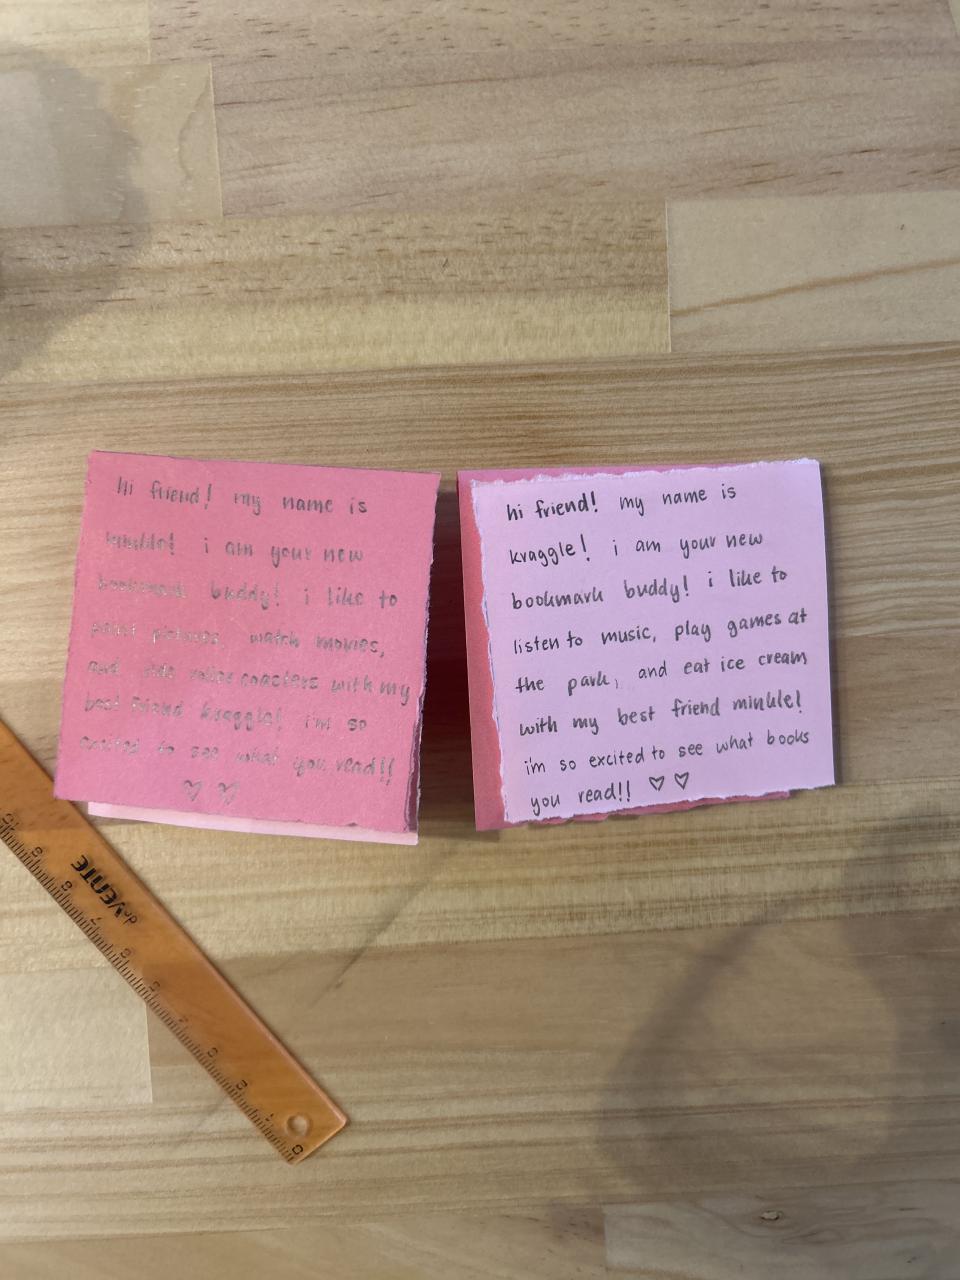 hi friend! my name is
minkle! i am your new
bookmark buddy! i like to
paint pictures, watch movies,
and ride roller coasters with my
best friend kraggle! i'm so
excited to see what you read!!
♡ ♡
hi friend! my name is
kraggle! i am your new
bookmark buddy! i like to
listen to music, play games at
the park, and eat ice cream
with my best friend minkle!
i'm so excited to see what books
you read!! ♡ ♡
deVENTE
0 1 2 3 4 5 6 7 8 9 10